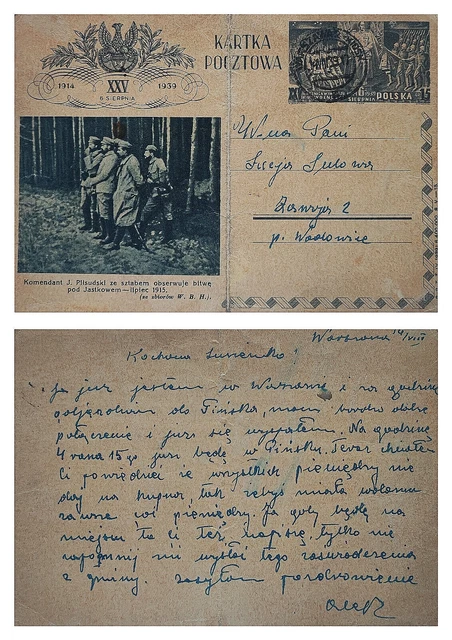 KARTKA
POCZTOWA
1914 XXV 1939
6 SIERPNIA
SIERPNIA POLSKA 15
Komendant J. Piłsudski ze sztabem obserwuje bitwę
pod Jastkowem — lipiec 1915.
(ze zbiorów W. B. H.)
W-na Pani
Zawoja 2
p. Wadowice
Warszawa 14/VIII
Kochana !
Ja już jestem w Warszawie i za godzinę
odjeżdżam do Pińska, mam bardzo dobre
połączenie i już się wyspałem. Na godzinę
4 rano 15-go już będę w Pińsku. Teraz chciałem
Ci powiedzieć że wszystkich pieniędzy nie
daj na kupno, tak żebyś miała w domu
zawsze coś pieniędzy. Ja gdy będę na
miejscu to Ci też napiszę, tylko nie
zapomnij mi wysłać tego zaświadczenia
z gminy. zasyłam pozdrowienie